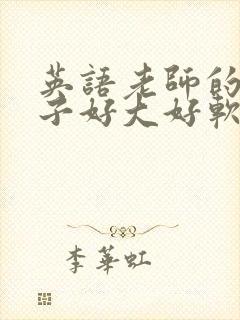 英語老師的
子好大好軟
李華虹